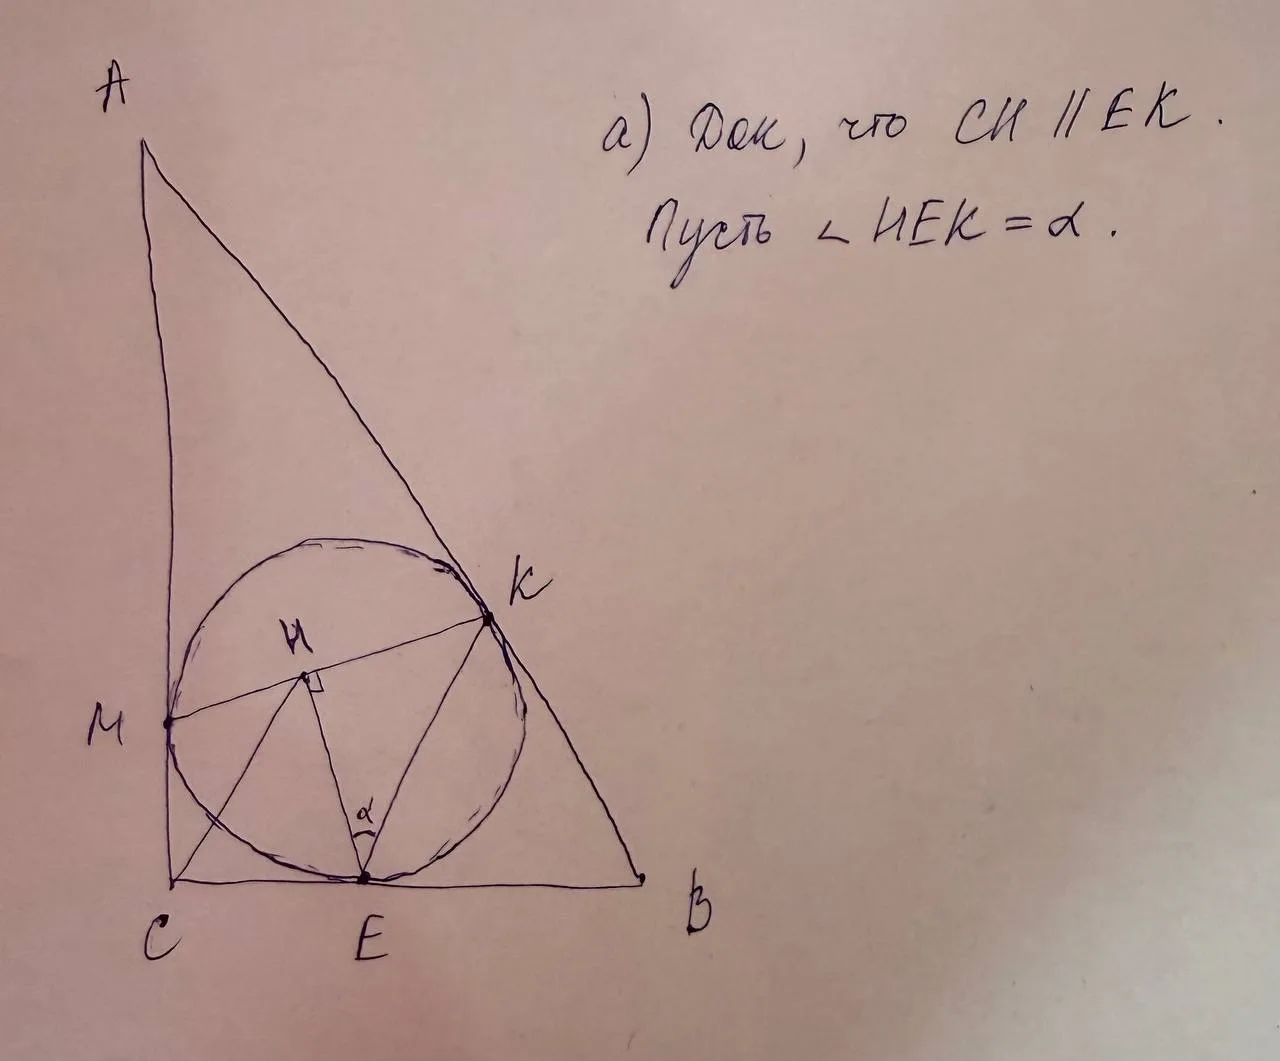 A
а) Док, что CH || EK.
Пусть ∠ HEK = α.
K
H
M
α
C
E
B